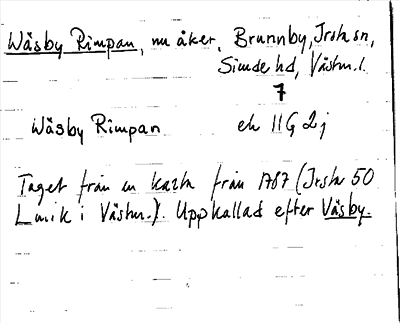 Wäsby Rimpan, nu åker, Brunnby, Irsta sn,
Siende hd, Västm. l.
7
Wäsby Rimpan ek 11G 2j
Taget från en karta från 1787 (Irsta 50
Lmk i Västm.). Uppkallad efter Väsby.